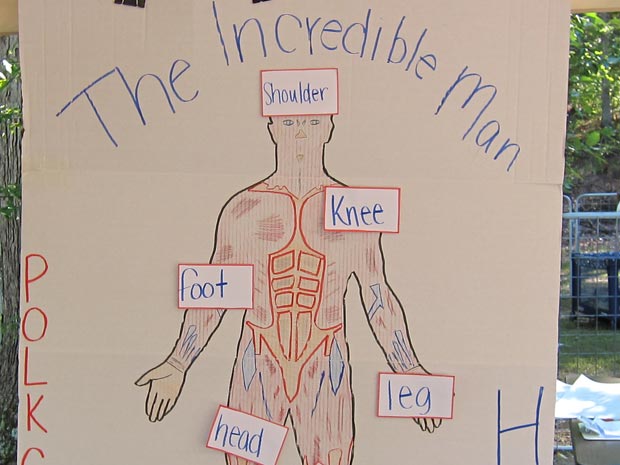 The Incredible Man
Shoulder
Knee
foot
leg
head
POLK
H